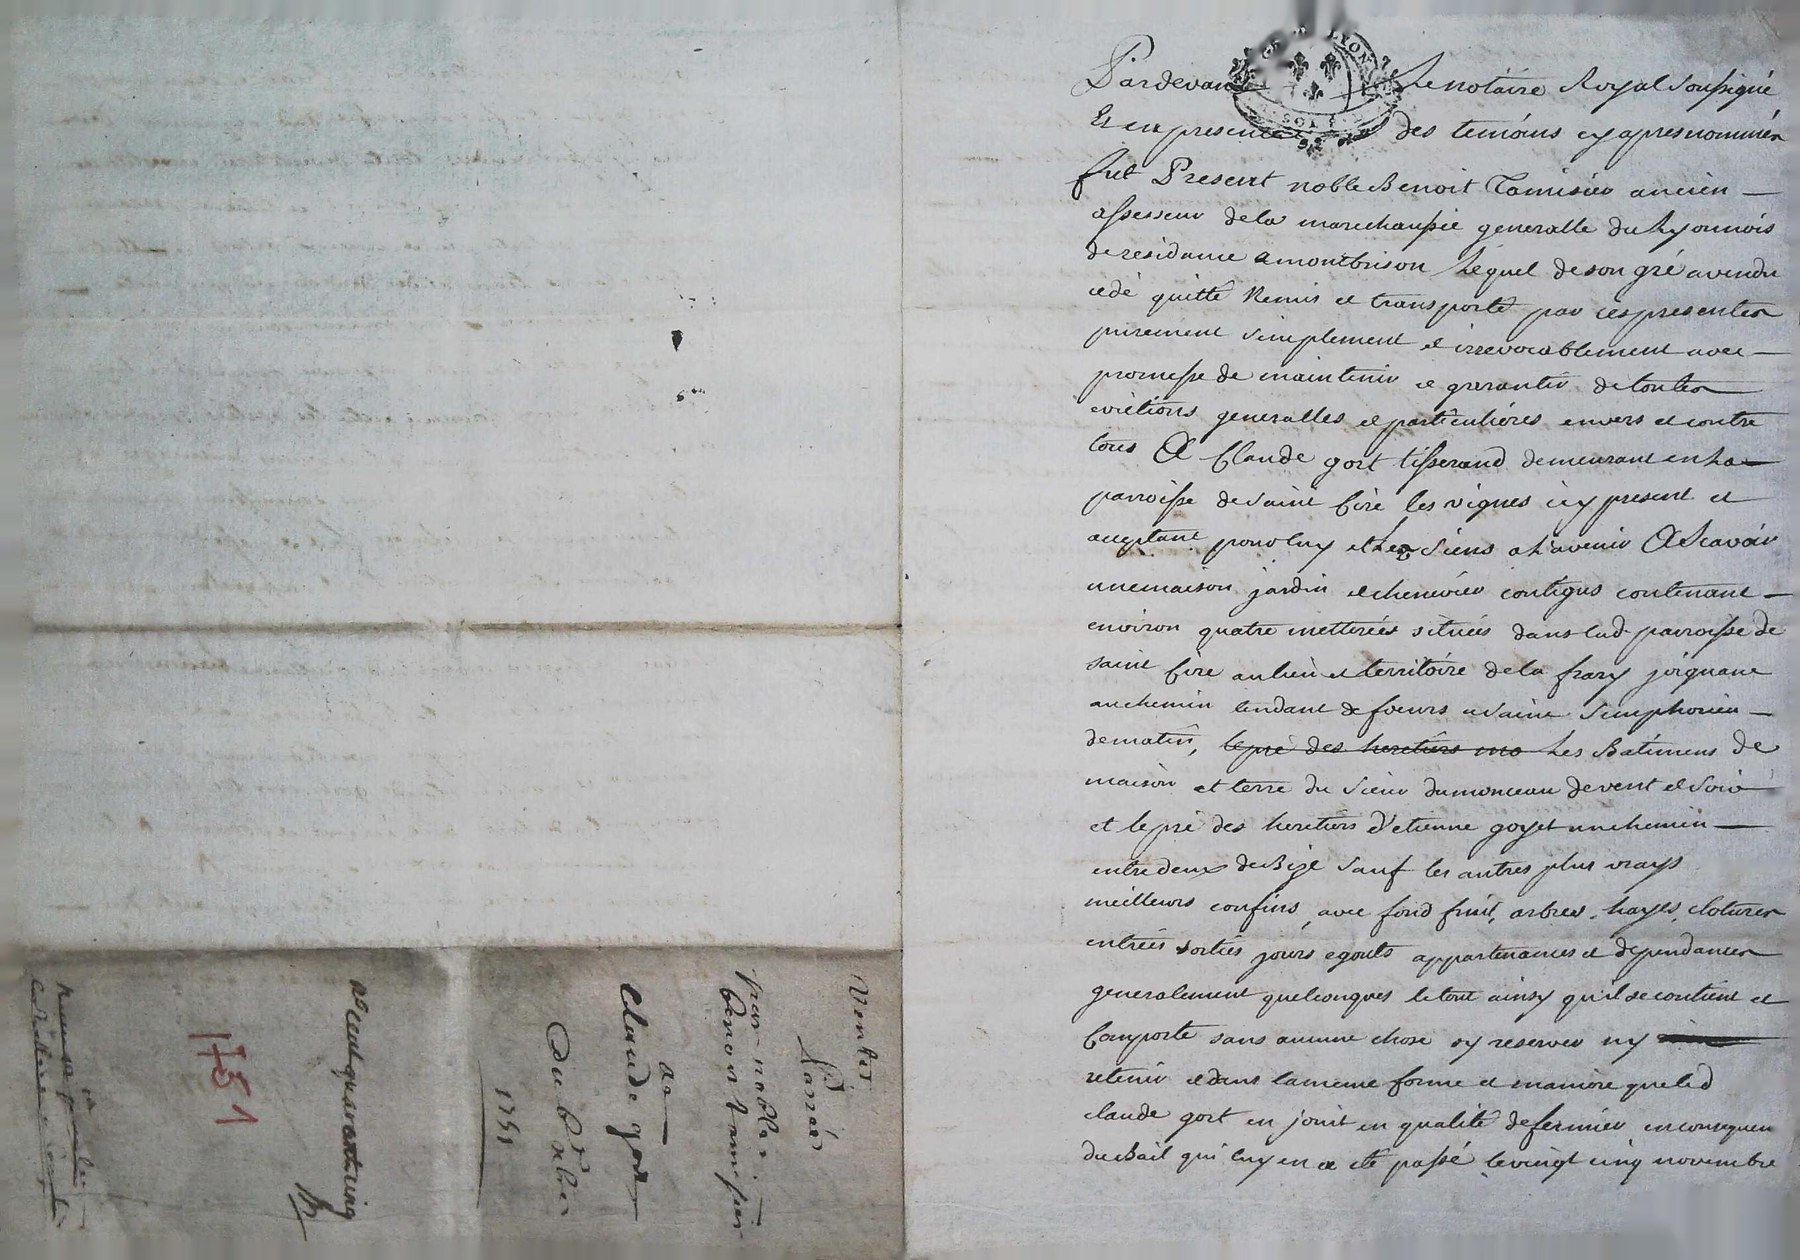 Pardevant Le notaire Royal soussigné
Et en presence des temoins cy apres nommés
fut Present noble Benoit Tamisier ancien
assesseur de la marechaussée generalle du Lyonnois
de residance a montbrison Lequel de son gré a vendu
cedé quitté Remis et transporté par ces presentes
purement simplement et irrevocablement avec
promesse de maintenir et garantir de toutes
evictions generalles et particulières envers et contre
tous A Claude gort tisserand demeurant en la
parroisse de saint Cire les vignes icy present et
acceptant pour luy et Les siens a L'avenir A scavoir
une maison jardin et chenevier contigus contenant
environ quatre metterées situées dans lad. parroisse de
saint Cire au lieu et territoire de la frary joignant
au chemin tendant de foeurs a saint simphorien
de matin, le pré des heretiers Les Batimens de
maison et terre du sieur dumonceau de vent et soir
et le pré des heretiers d'etienne goyet un chemin
entre deux de Bize sauf les autres plus vrays
meilleurs confins, avec fond fruit, arbres, hayes, clotures
entrées sorties jours egouts appartenances et dependances
generalement quelconques le tout ainsy qu'il se contient et
Comporte sans aucune chose sy reserver ny
retenir et dans la meme forme et maniere que led
claude gort en jouit en qualité de fermier en consequen
du Bail qui luy en a eté passé le vingt cinq novembre
Ventes
par noble
Benoit tamisier
a
claude gort
Du
1751
1751